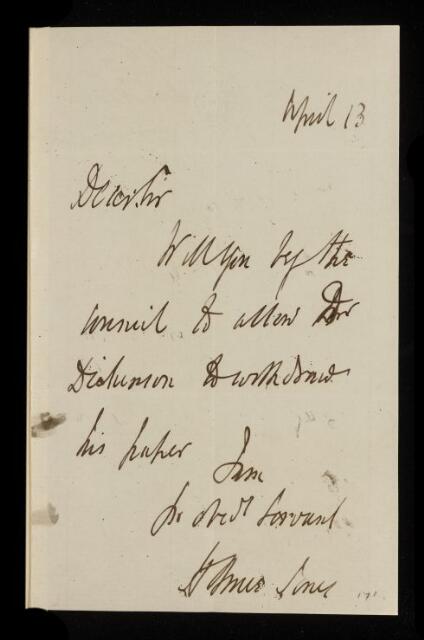 April 13
Dear Sir
Will you beg the
council to allow Dr
Dickinson to withdraw
his paper
I am
Yr obedt Servant
H Bence Jones